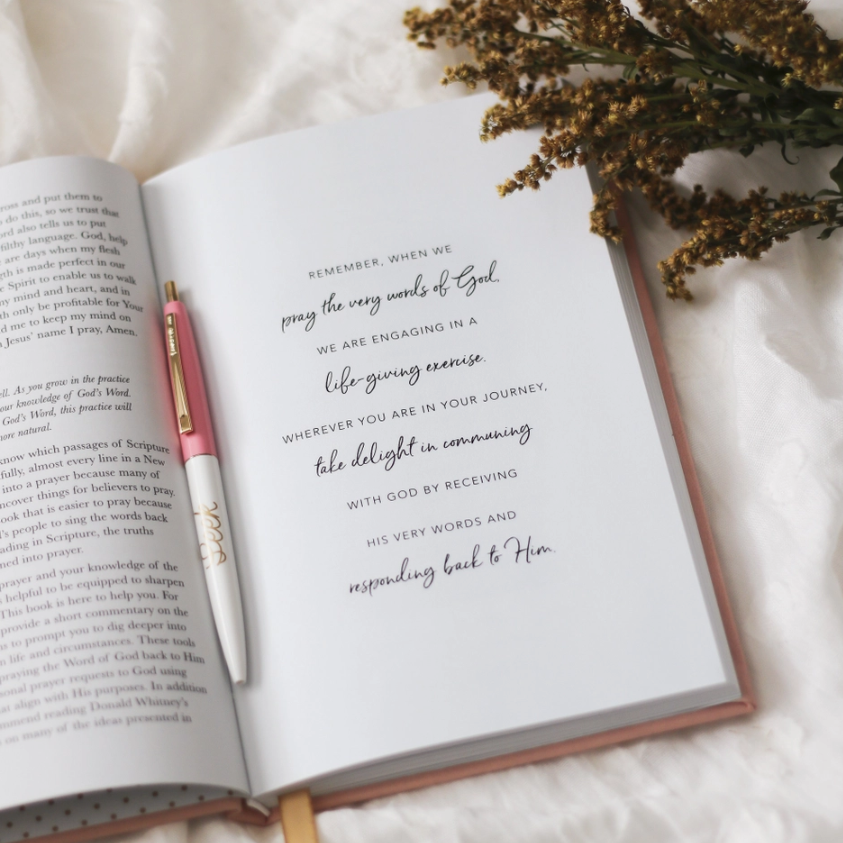 ross and put them to
do this, so we trust that
ord also tells us to put
filthy language. God, help
are days when my flesh
gth is made perfect in our
Spirit to enable us to walk
my mind and heart, and in
th only be profitable for Your
d me to keep my mind on
Jesus' name I pray, Amen.
ell. As you grow in the practice
our knowledge of God's Word.
God's Word, this practice will
more natural.
know which passages of Scripture
fully, almost every line in a New
into a prayer because many of
ncover things for believers to pray.
ook that is easier to pray because
's people to sing the words back
ading in Scripture, the truths
ned into prayer.
prayer and your knowledge of the
helpful to be equipped to sharpen
This book is here to help you. For
provide a short commentary on the
us to prompt you to dig deeper into
n life and circumstances. These tools
praying the Word of God back to Him
onal prayer requests to God using
at align with His purposes. In addition
mmend reading Donald Whitney's
on many of the ideas presented in
Seek
REMEMBER, WHEN WE
pray the very words of God,
WE ARE ENGAGING IN A
life-giving exercise.
WHEREVER YOU ARE IN YOUR JOURNEY,
take delight in communing
WITH GOD BY RECEIVING
HIS VERY WORDS AND
responding back to Him.